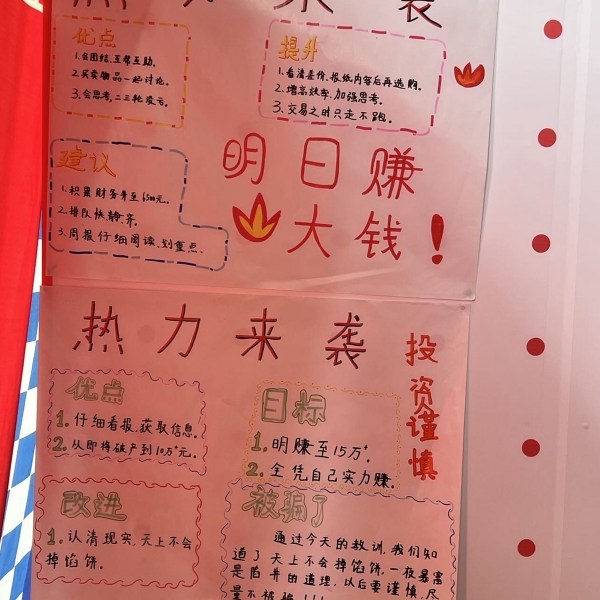 热力来袭
优点
1.会团结,互帮互助。
2.买卖物品一起讨论。
3.会思考,二三轮发亏。
提升
1.看清差价、报纸内容后再选购。
2.增高效率,加强思考。
3.交易之时只走不跑。
建议
1.积累财务奔至1500元。
2.排队快静齐。
3.周报仔细阅读、划重点.
明日赚
大钱!
热力来袭
投资谨慎
优点
1.仔细看报,获取信息。
2.从即将破产到10万+元。
目标
1.明赚至15万+
2.全凭自己实力赚。
改进
1.认清现实,天上不会
掉馅饼。
被骗了
通过今天的教训,我们知
道了天上不会掉馅饼,一夜暴富
是陷井的道理,以后要谨慎,尽
量不被骗!!!